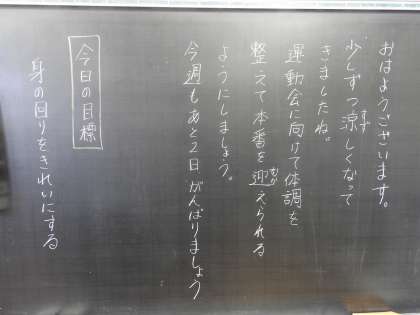 おはようございます。
少しずつ涼しくなって
きましたね。
運動会に向けて体調を
整えて本番を迎えられる
ようにしましょう。
今週もあと2日がんばりましょう
今日の目標
身の回りをきれいにする